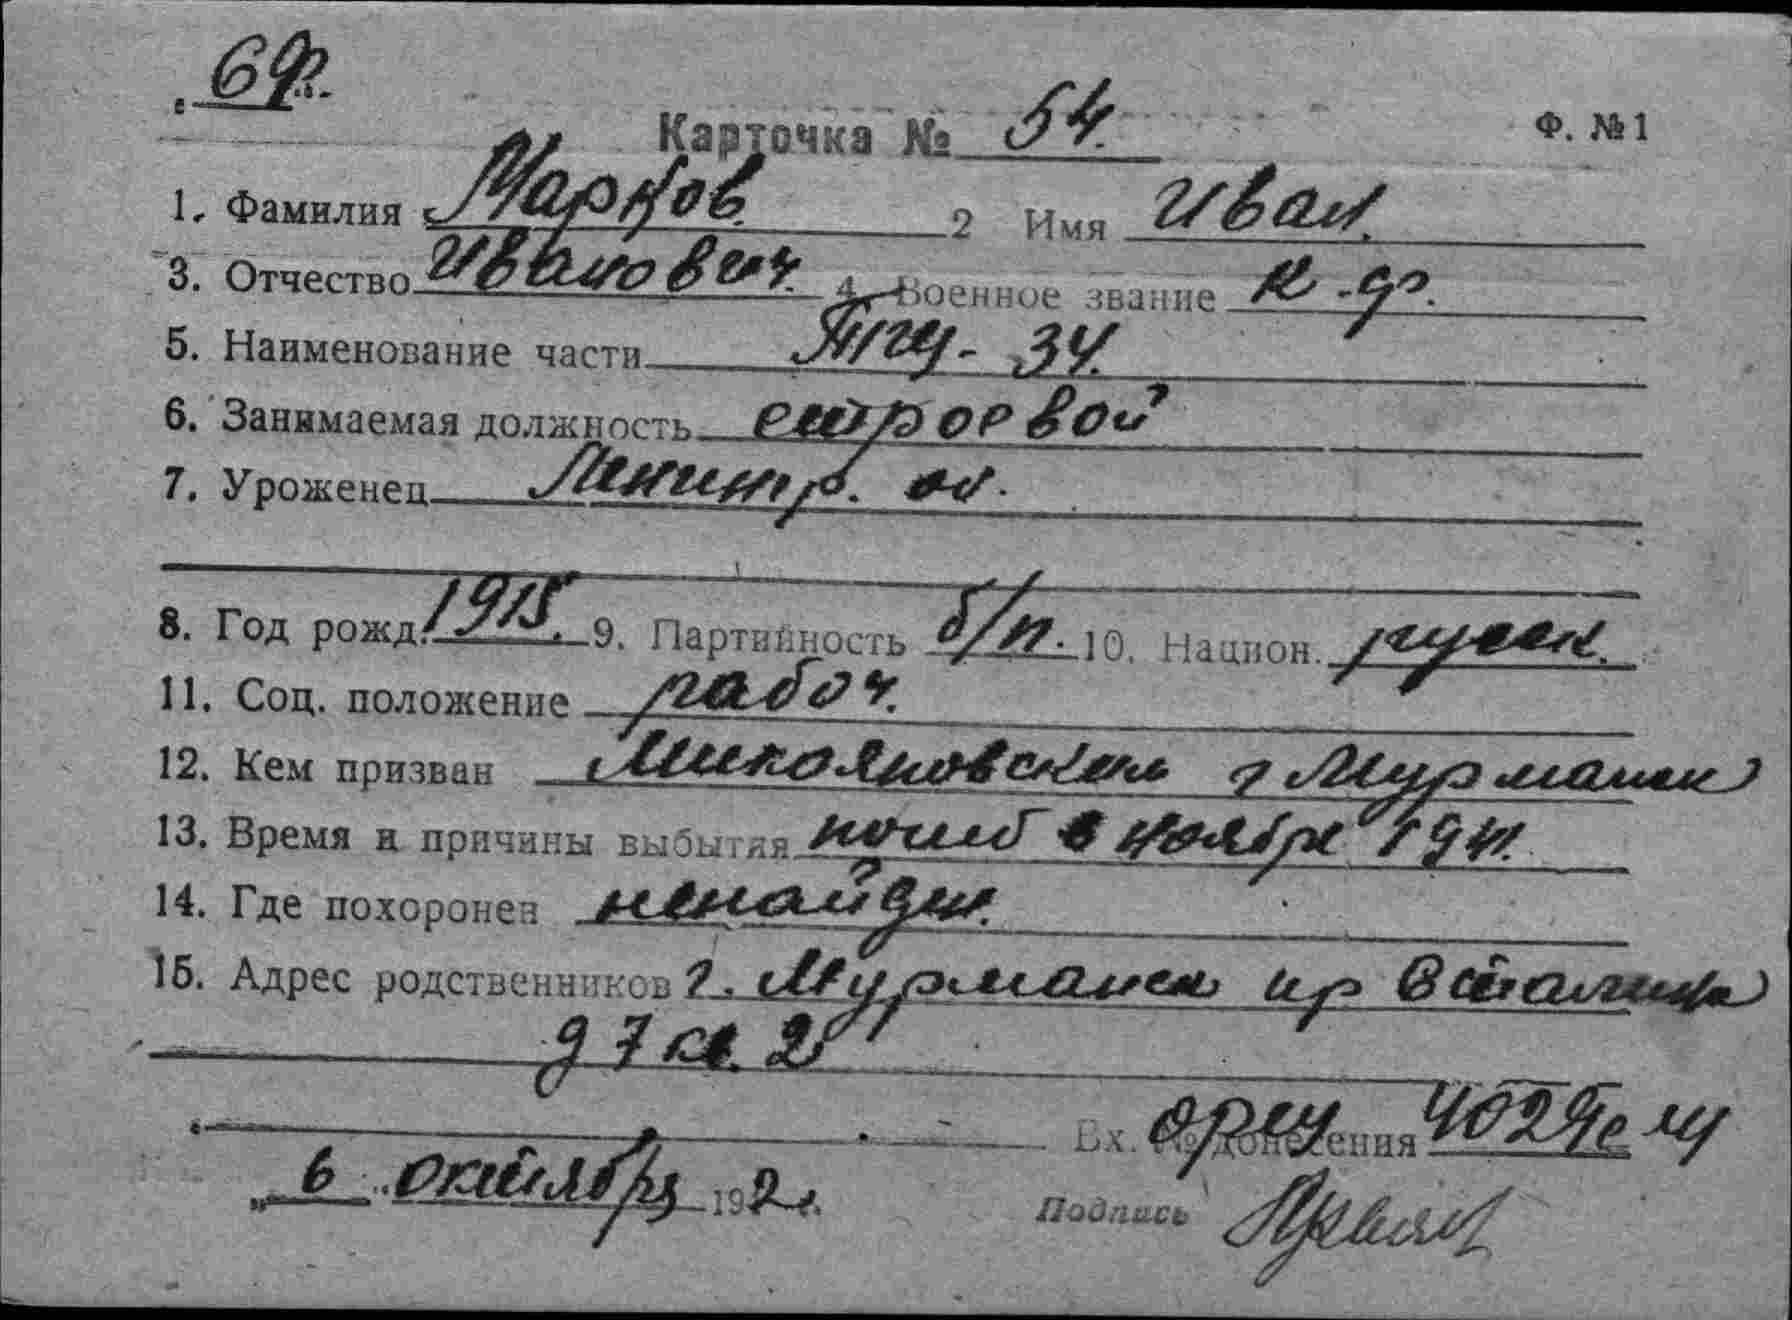 Карточка № 54. Ф. № 1
1. Фамилия Марков 2 Имя Иван.
3. Отчество Иванович. 4. Военное звание к-ф.
5. Наименование части 34.
6. Занимаемая должность строевой
7. Уроженец Ленингр. об.
8. Год рожд. 1915. 9. Партийность б/п. 10. Национ. русск.
11. Соц. положение рабоч.
12. Кем призван Микояновским г Мурманск
13. Время и причины выбытия погиб в ноябре 1941.
14. Где похоронен ненайден.
15. Адрес родственников г. Мурманск пр Сталина
д 7 кв. 2
Вх. № донесения
„ 6 " октября 192 г.
Подпись